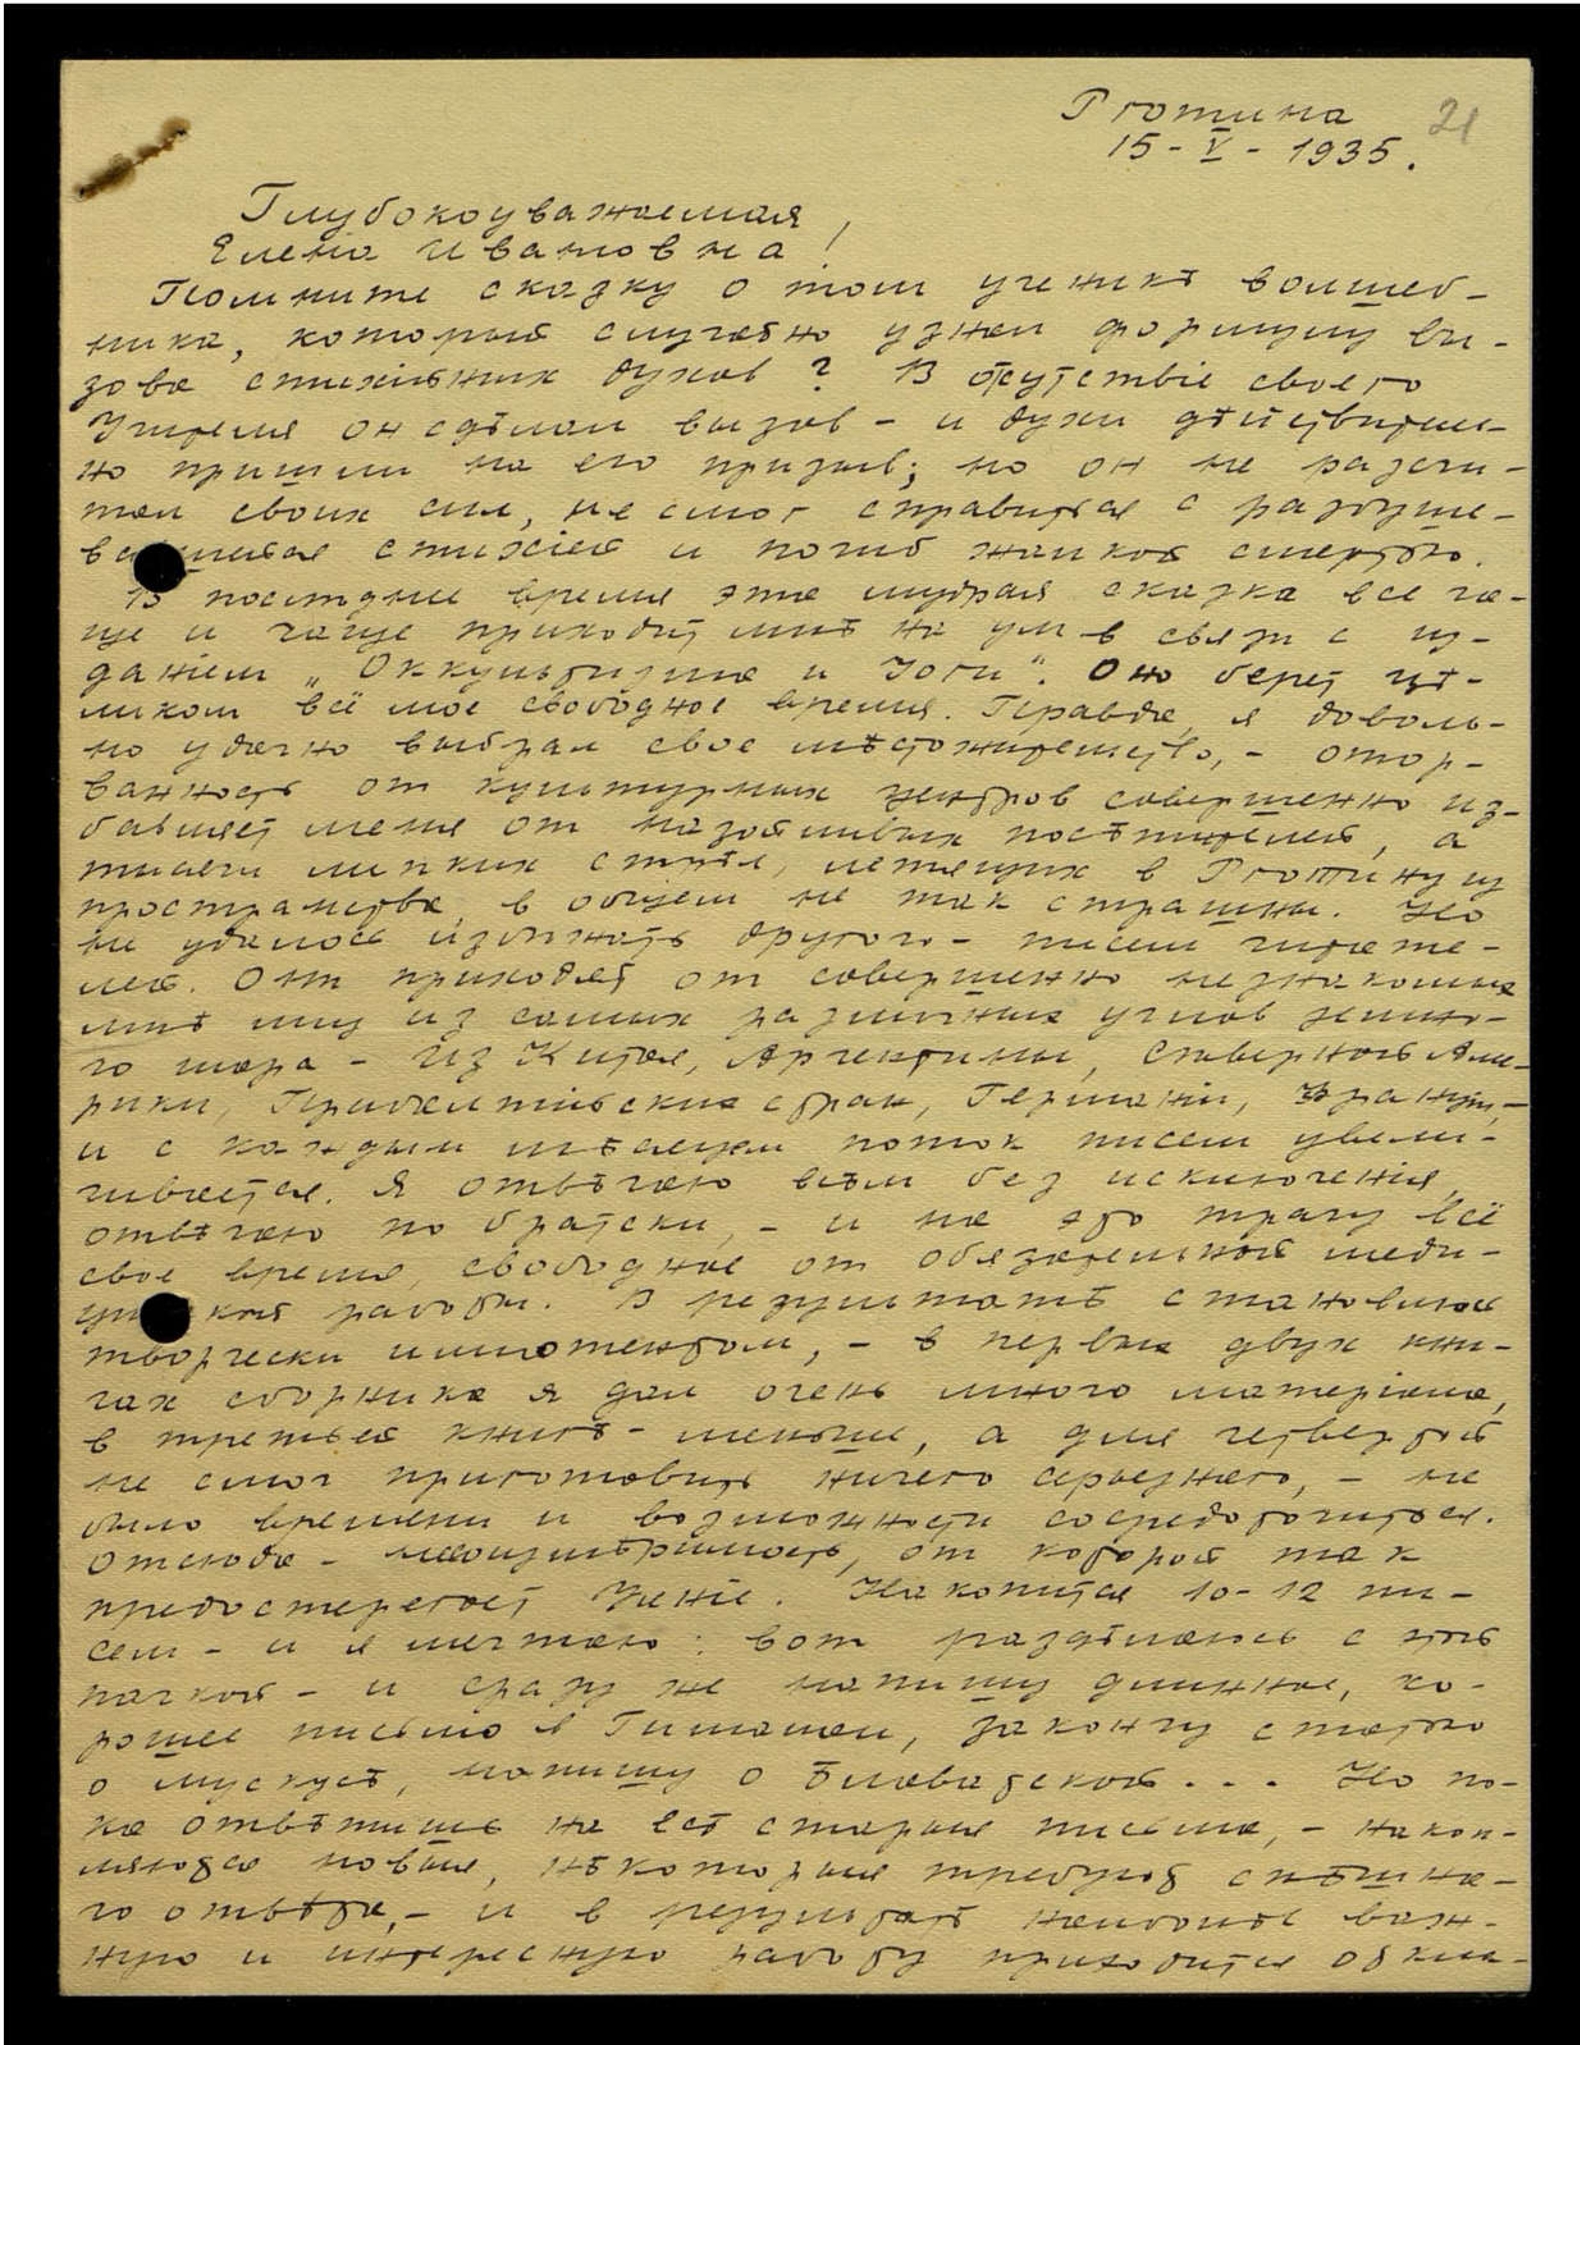 Рготина 21
15 - V - 1935.
Глубокоуважаемая
Елена Ивановна!
Помните сказку о том ученикѣ волшеб-
ника, который случайно узнал формулу вы-
зова стихійных духов? В отсутствіе своего
Учителя он сдѣлал вызов - и духи дѣйствитель-
но пришли на его призыв; но он не разсчи-
тал своих сил, не смог справиться с разбуше-
вавшейся стихіей и погиб жалкой смертью.
В послѣднее время эта мудрая сказка все ча-
ще и чаще приходит мнѣ на ум в связи с из-
даніем „Оккультизма и Йоги". Оно берет цѣ-
ликом всё мое свободное время. Правда, я доволь-
но удачно выбрал свое мѣстожительство, - отор-
ванность от культурных центров совершенно из-
бавляет меня от назойливых посѣтителей, а
тысячи мелких стрѣл, летящих в Рготину из
пространства, в общем не так страшны. Но
не удалось избѣжать другого - писем читате-
лей. Онѣ приходят от совершенно незнакомых
мнѣ лиц из самых различных углов земно-
го шара - из Китая, Аргентины, Сѣверной Аме-
рики, Прибалтійских стран, Германіи, Франціи, -
и с каждым мѣсяцем поток писем увели-
чивается. Я отвѣчаю всѣм без исключенія,
отвѣчаю по братски, - и на это трачу всё
свое время, свободное от обязательной меди-
цинской работы. В результатѣ становлюсь
творчески импотентом, - в первых двух кни-
гах сборника я дал очень много матеріала,
в третьей книгѣ - меньше, а для четвертой
не смог приготовить ничего серьезнаго, - не
было времени и возможности сосредоточиться.
Отсюда - несоизмѣримость, от которой так
предостерегает Ученіе. Накопится 10-12 пи-
сем - и я мечтаю: вот раздѣлаюсь с этой
пачкой - и сразу же напишу длинное, хо-
рошее письмо в Гималаи, закончу статью
о мускусѣ, напишу о Блаватской... Но по-
ка отвѣтишь на всѣ старыя письма, - накоп-
ляются новыя, нѣкоторыя требуют спѣшна-
го отвѣта, - и в результатѣ наиболѣе важ-
ную и интересную работу приходится откла-